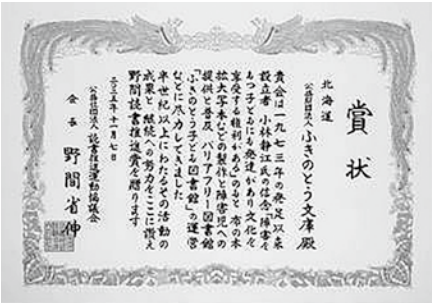 賞状
北海道
公益財団法人 ふきのとう文庫 殿
貴会は一九七三年の発足以来
設立者 小林静江氏の信念「障害を
もつ子どもにも発達があり文化を
享受する権利がある」のもと 布の本
拡大写本などの製作と障害児への
提供と普及 バリアフリー図書館
「ふきのとう子ども図書館」の運営
などに尽力してきました
半世紀以上にわたるその活動の
成果と 継続への努力をここに讃え
野間読書推進賞を贈ります
二〇二五年十一月七日
公益社団法人 読書推進運動協議会
会長 野間省伸